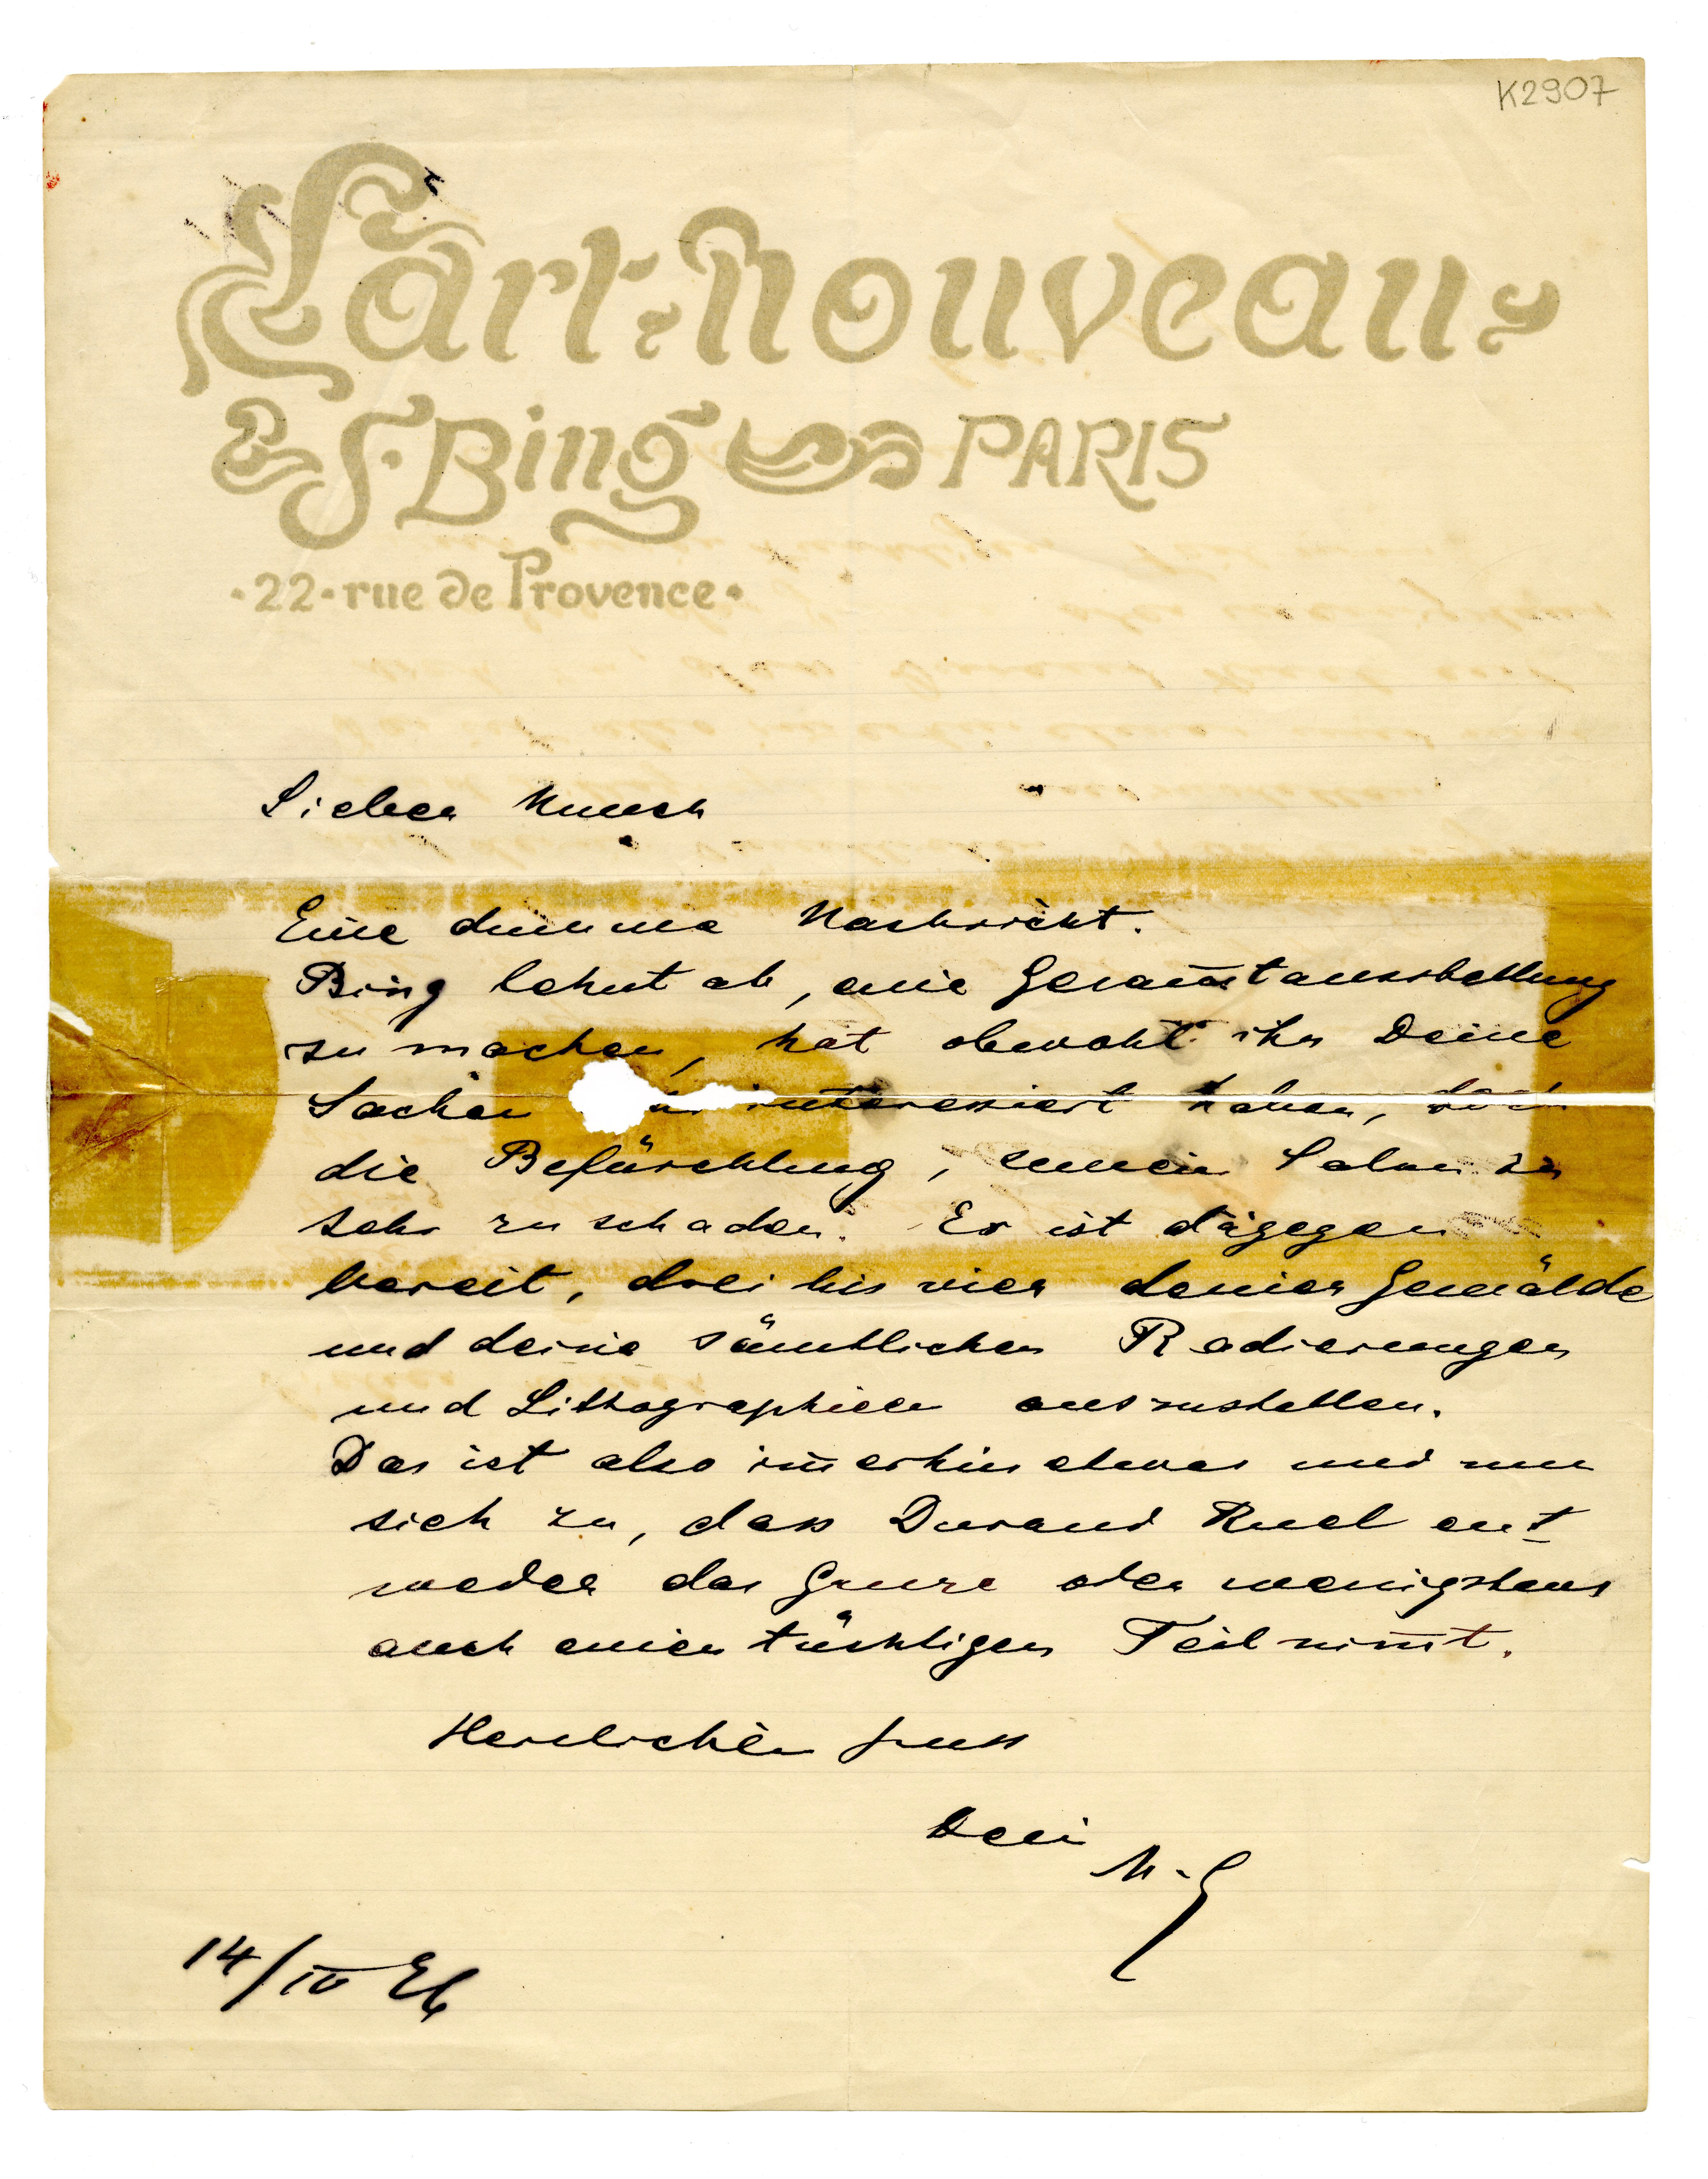 K2907
L'art Nouveau
S. Bing PARIS
·22·rue de Provence·
Lieber Munch
Eine dumme Nachricht.
Bing lehnt ab, eine Gesam̄tausstellung
zu machen, hat obwohl ihn Deine
Sachen interessiert haben, doch
die Befürchtung, seinem Salon zu
sehr zu schaden. Er ist dagegen
bereit, drei bis vier deiner Gemälde
und deine sämtlichen Radierungen
und Lithographieen auszustellen.
Das ist also im̄erhin etwas und nun
sich zu, dass Durand Ruel ent-
weder das Ganze oder wenigstens
auch einen tüchtigen Teil nim̄t.
Herzlichen Gruss
Dein
M-G
14/IV 96